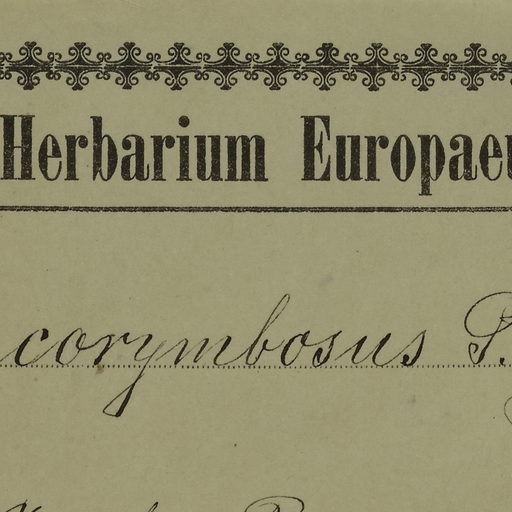 Herbarium Europaeu
corymbosus P.